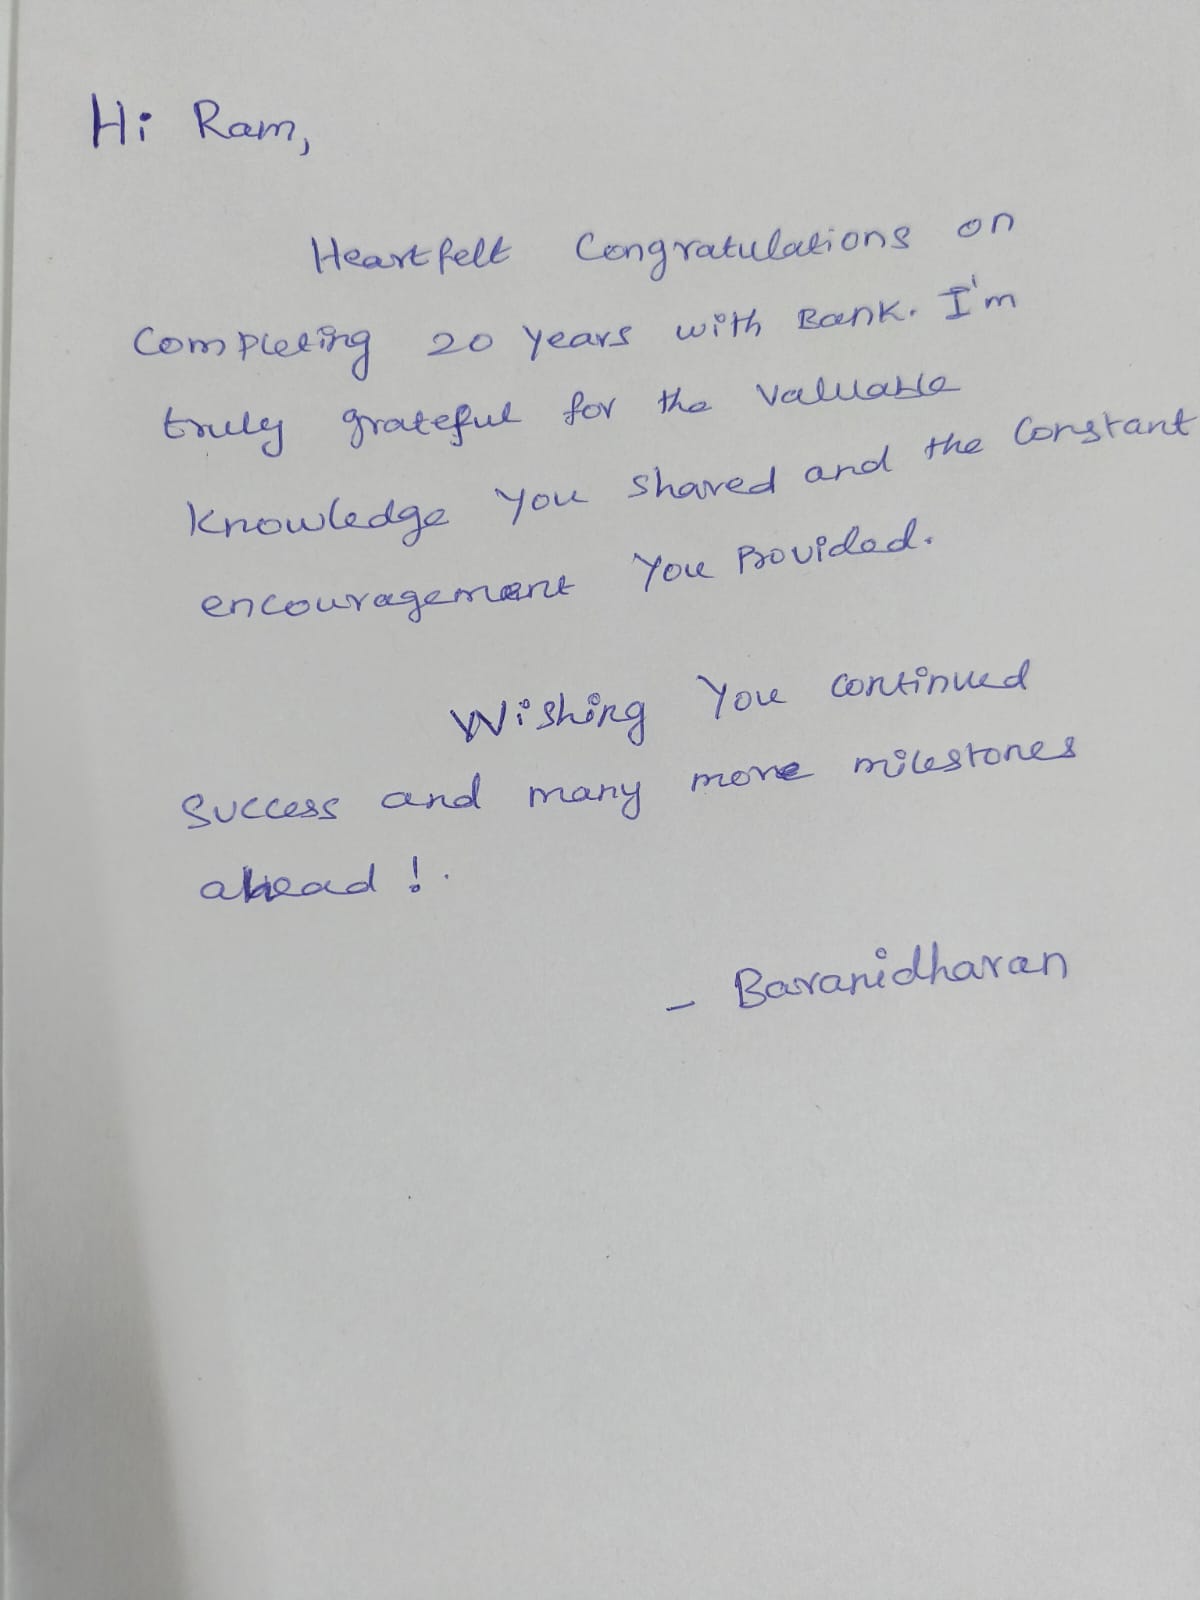 Hi Ram,
Heartfelt Congratulations on
Completing 20 years with Bank. I'm
truly grateful for the valuable
knowledge you shared and the constant
encouragement you provided.
Wishing you continued
success and many more milestones
ahead!.
- Baranidharan